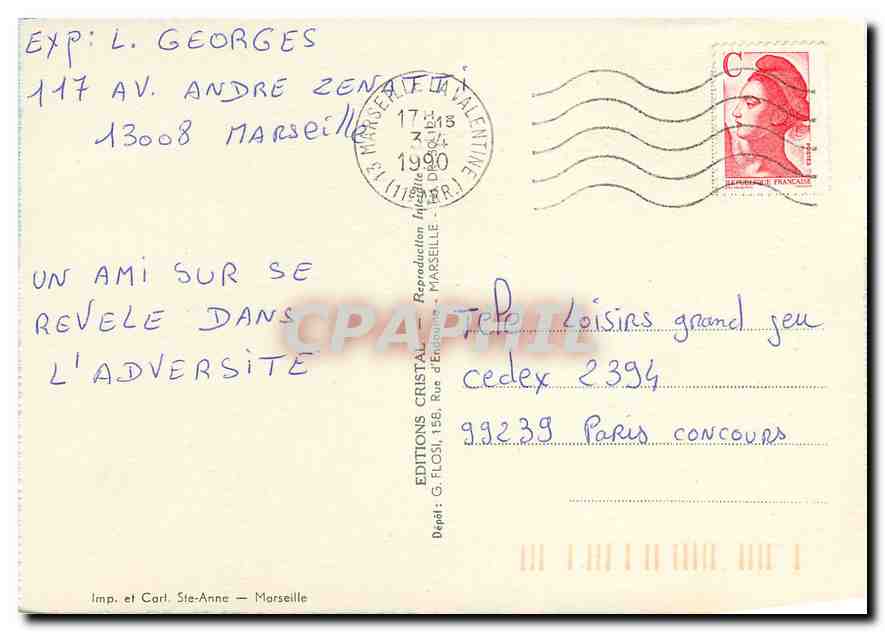 EXP: L. GEORGES
117 AV. ANDRE ZENATTI
13008 MARSEILLE
UN AMI SUR SE
REVELE DANS
L'ADVERSITE
13 MARSEILLE LA VALENTINE (11e ARR.)
3-4
1990
C
REPUBLIQUE FRANCAISE
POSTES
Tele Loisirs grand jeu
cedex 2394
99239 Paris CONCOURS
EDITIONS CRISTAL - Reproduction Interdite
Dépôt: G. FLOSI, 158, Rue d'Endoume - MARSEILLE -
CPAPHIL
Imp. et Cart. Ste-Anne — Marseille